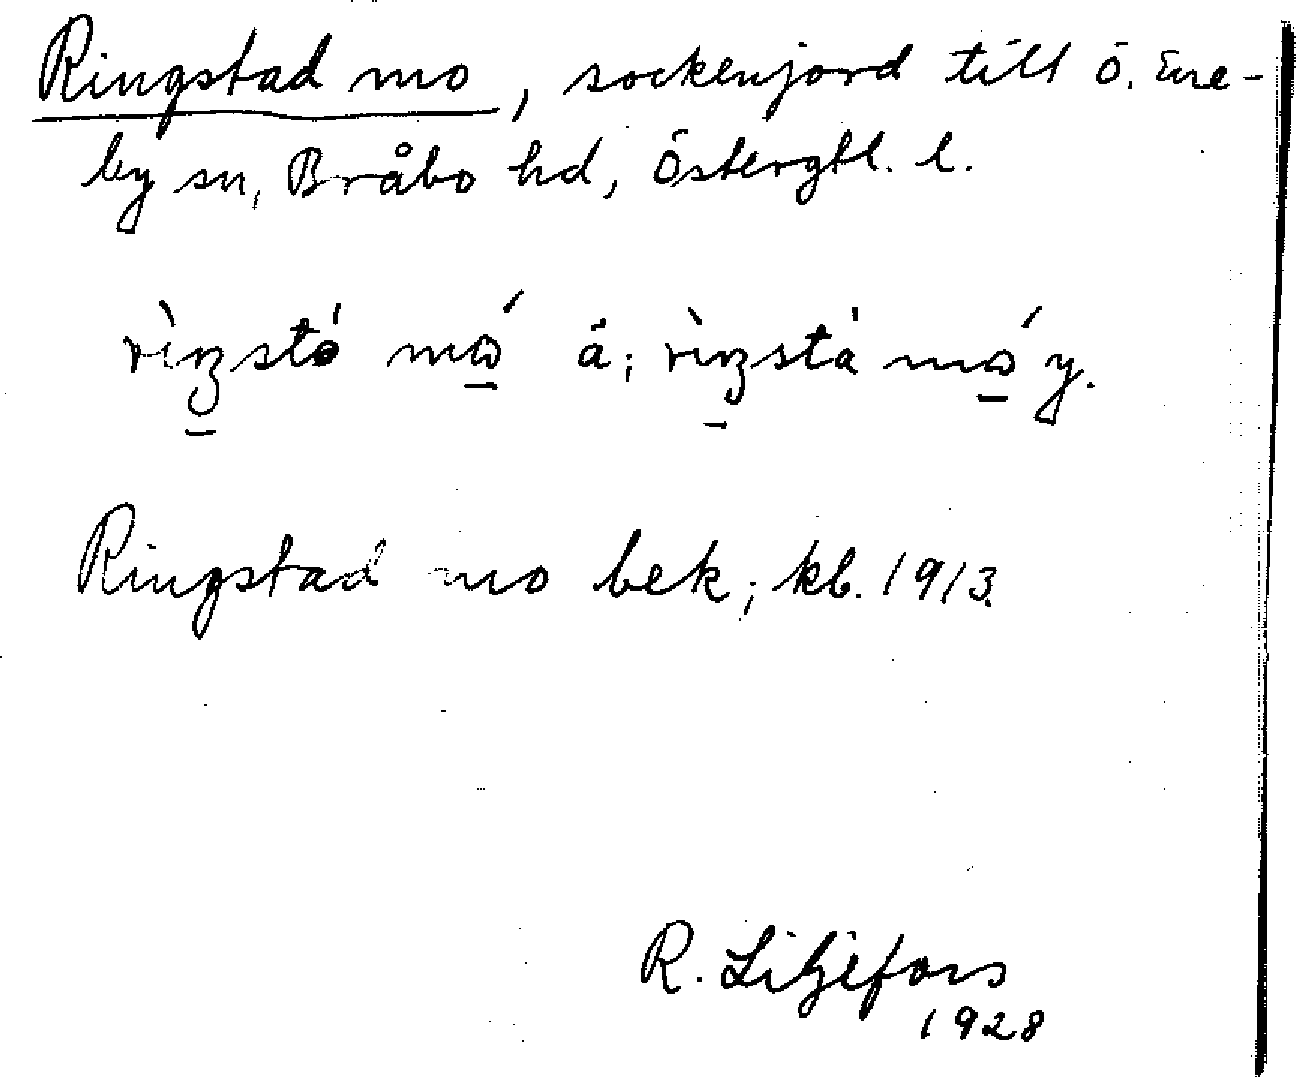 Ringstad mo, sockenjord till Ö. Ene-
by sn, Bråbo hd, Östergtl. l.
rìŋstó mó ä; rìŋstà mó y.
Ringstad mo bek; kb. 1913.
R. Liljefors
1928